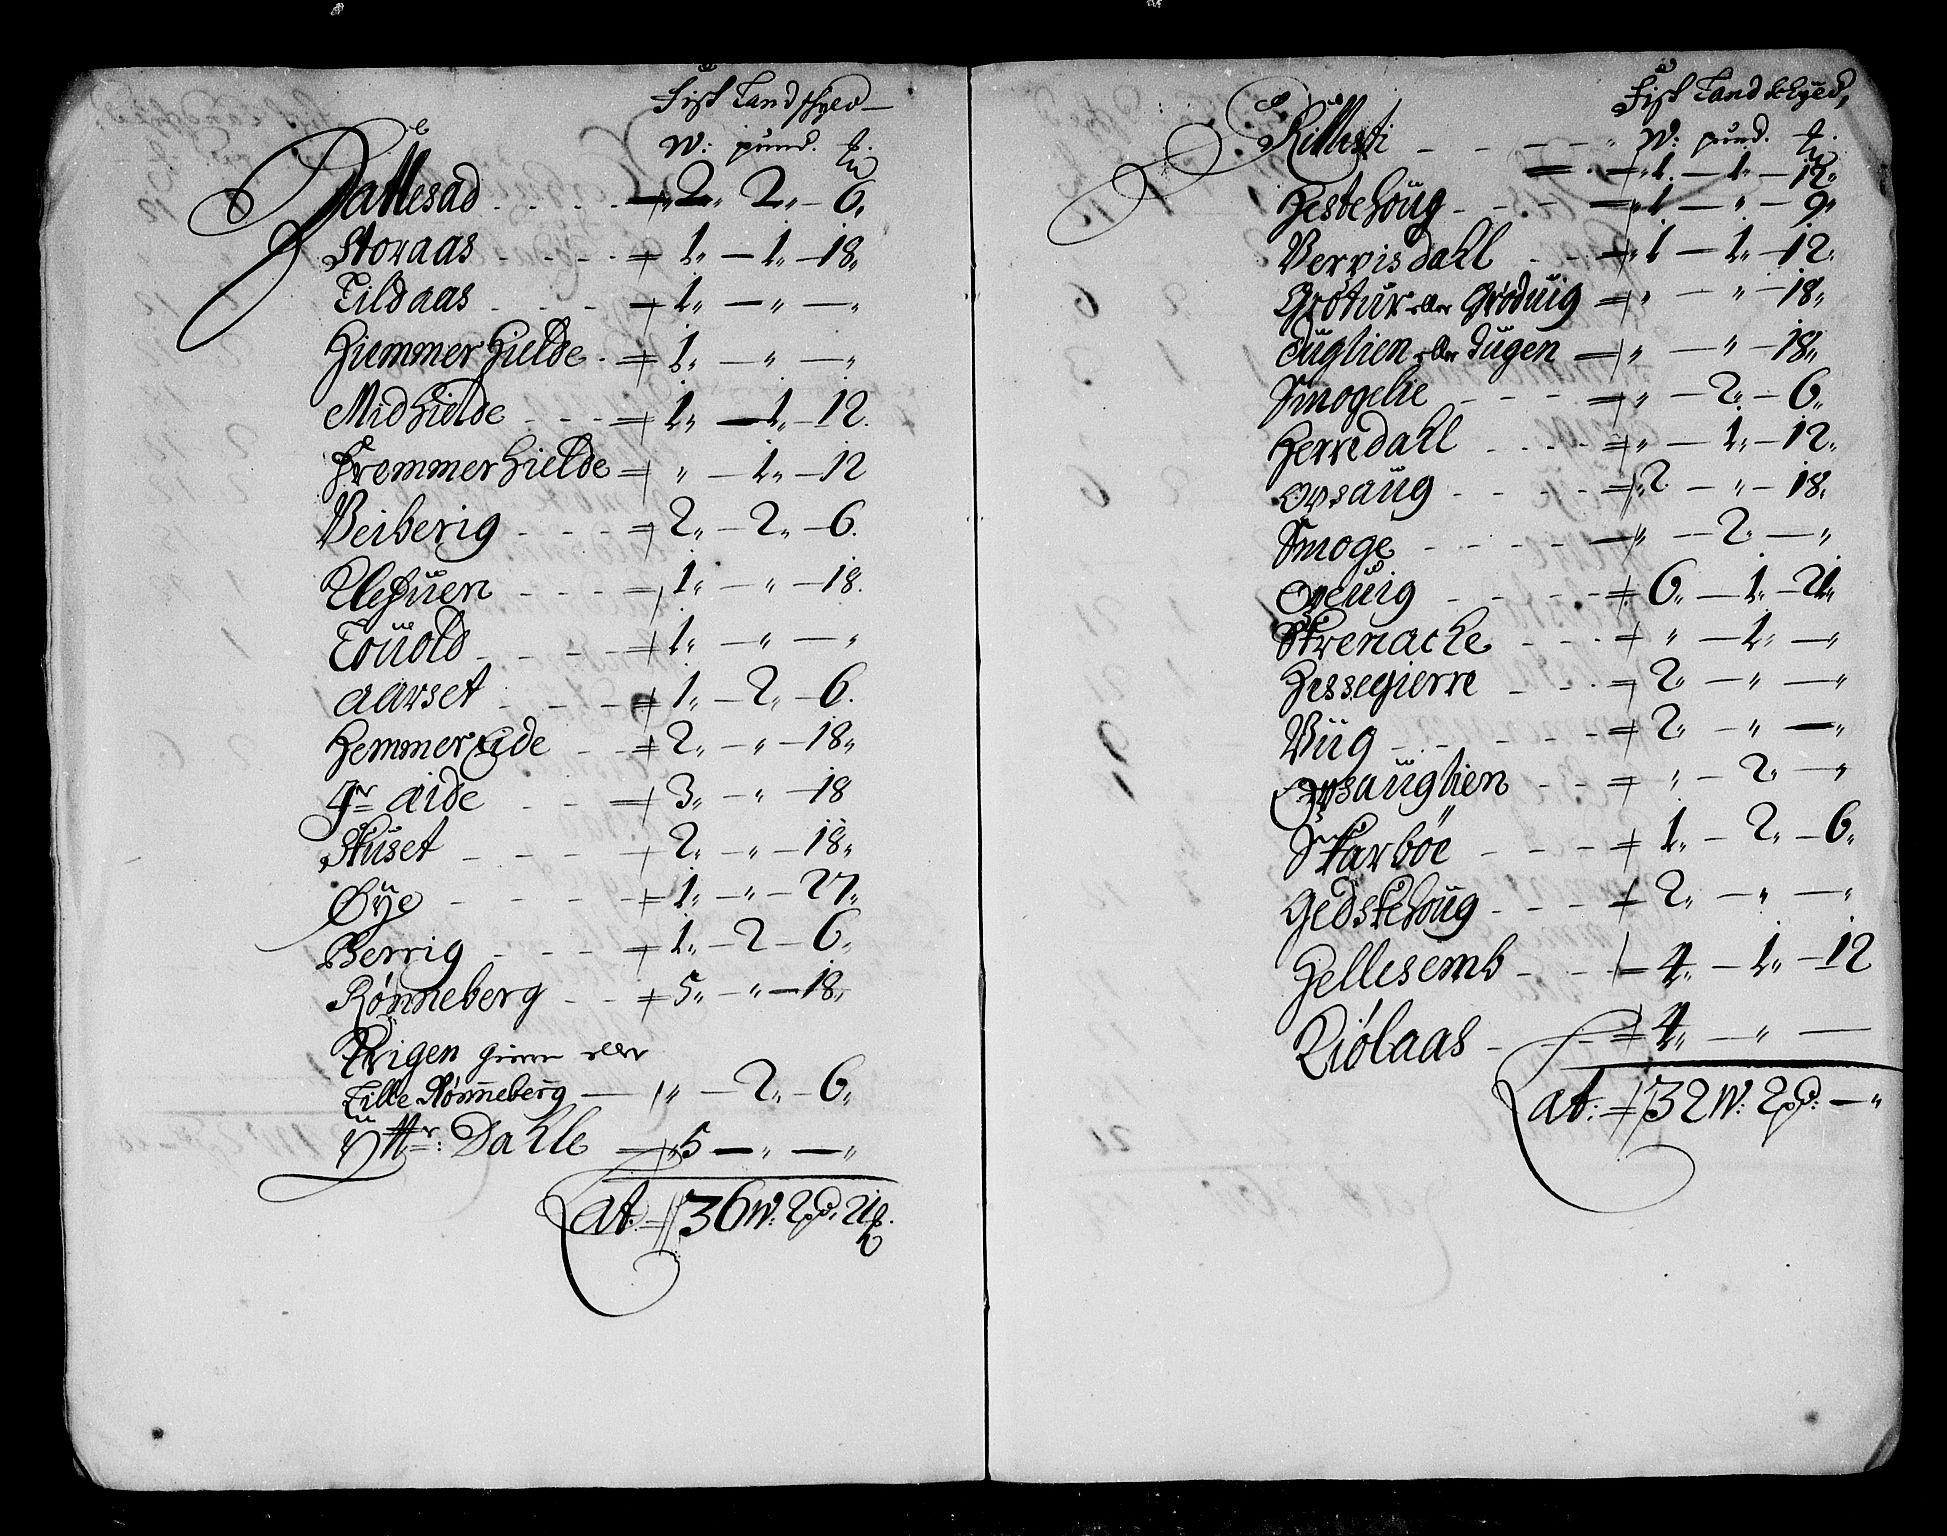 Fisk Landschyld
W: pund. ℔
Jattesad - - - - 2„ 2„ - 6„
Storaas - - - - 1„ - 1„ - 18„
Tildaas - - - - 1„ - „ - „
Hiemmer Hielde - 1„ - „ - „
Midhielde - - - 1„ - 1„ - 12.
Fremmerhielde „ - 1„ - 12
Veiberig - - - 2„ - 2„ - 6.
Ulefuen - - - - 1„ - „ - 18.
Touold - - - - 1„ - „ - „
aarset - - - - 1„ - 2„ - 6.
Hemmer Eide - - 2„ - „ - 18„
Jr aide - - - 3„ - „ - 18
Stuset - - - 2„ - „ - 18„
Øye - - - - 1„ - „ - 27„
Berrig - - - - 1„ - 2 - 6„
Rønneberg - - 5„ - „ - 18„
Krigen eller
Lille Rønneberg - „ - 2„ - 6„
Ytter: Dahle - 5 - „ - „
Lat. 36 W: 2 pd. 21 ℔.
Fisk Landskyld,
W: pund. ℔.
Killesti - - - - 1. - 1„ - 12„
Hestehoug - - - 1 - „ - 9„
Verpisdahl - - 1 - 1„ - 12„
Grotur eller Grøduig „ - „ - 18„
Duglien eller Dugen - „ - „ - 18„
Smogelie - - - - „ - 2„ - 6„
Herredahl - - - - „ - 1„ - 12„
Opsaug - - - - 2 - „ - 18„
Smoge - - - - „ - 2„ - „
Opeuig - - - - 6„ - 1„ - 21„
Strenache - - - „ - 1„ - „
Hessegierre - - 2„ - „ - „
Viig - - - - 2„ - „ - „
Opsauglien - - „ - 2„ - „
Skarbøe - - - 1„ - 2„ - 6„
Gedskehoug - - - 2„ - „ - „
Hellesemb - - - 4„ - 1„ - 12
Riølaas - - - 4„ - „ -
Lat: 32 W: 2 pd: - „